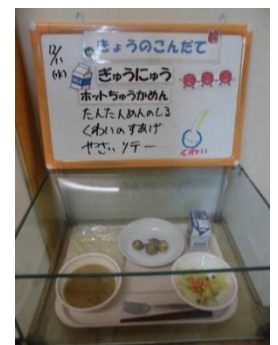 きょうのこんだて
12/11
(水)
ぎゅうにゅう
ホットちゅうかめん
たんたんめんのしる
くわいのすあげ
やさいソテー
くわい